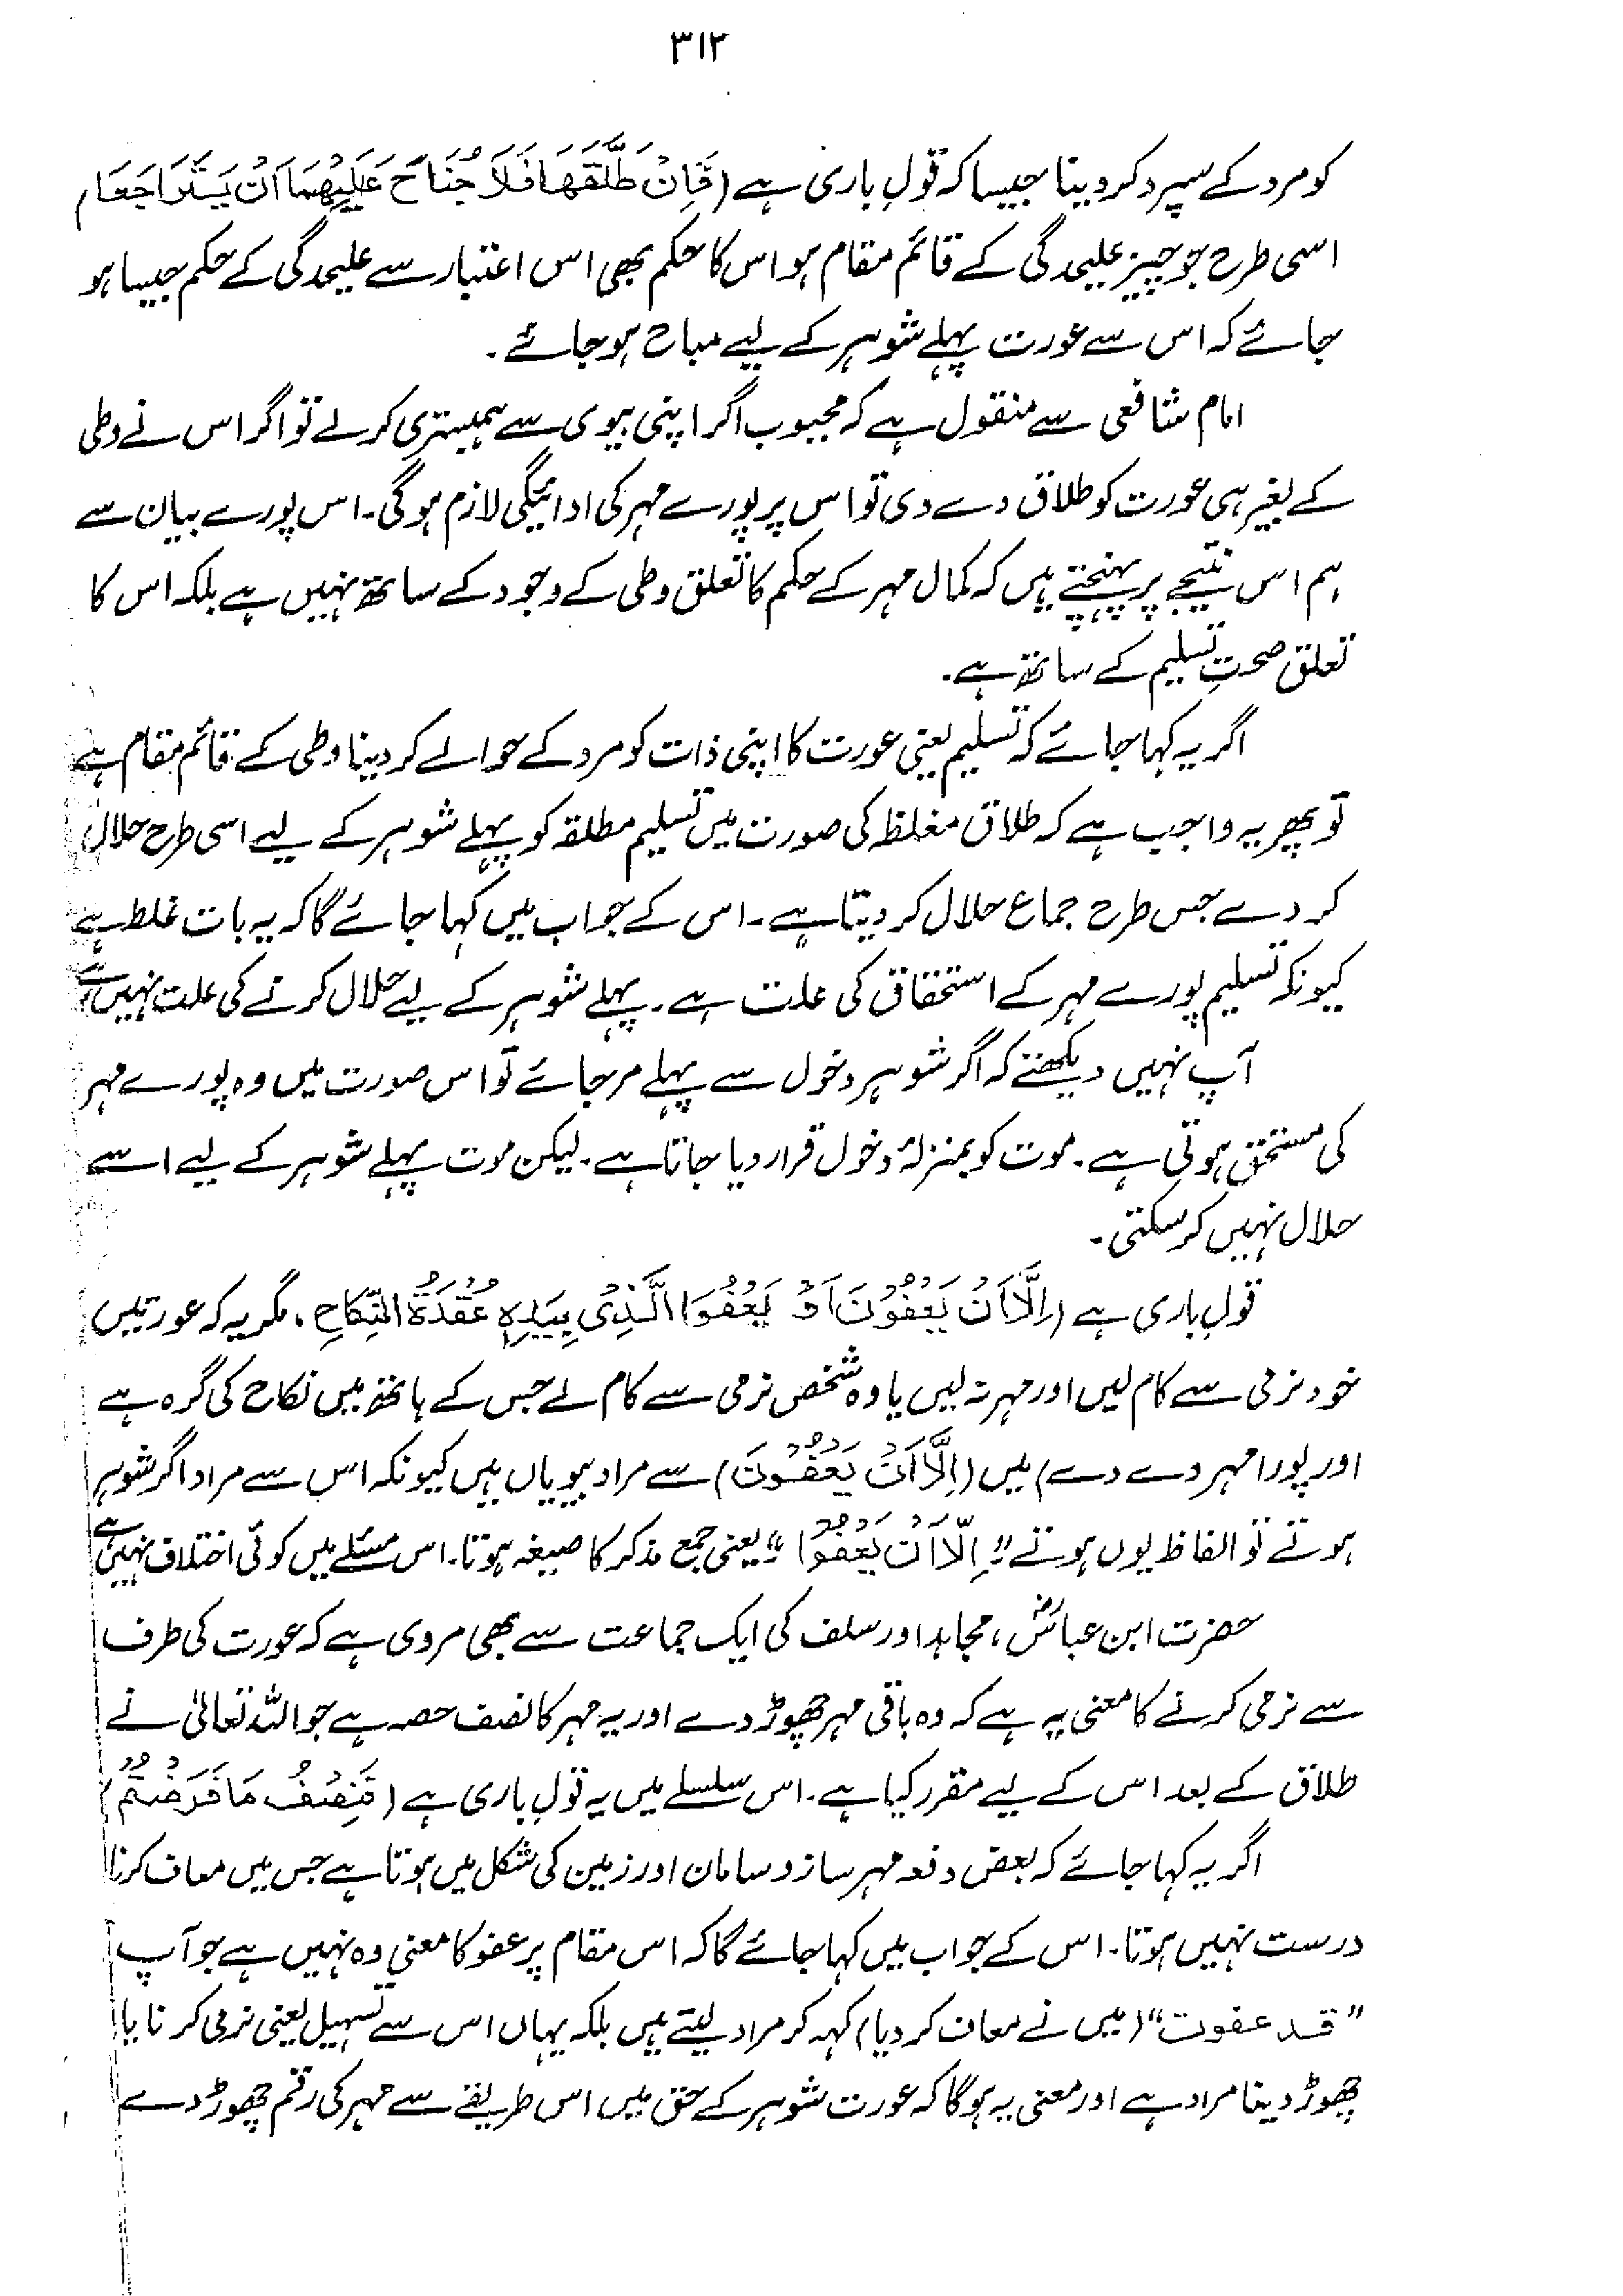 ۳۱۲
کو مرد کے سپرد کر دینا جیسا کہ قولِ باری ہے (فَاِنْ طَلَّقَهَا فَلَا جُنَاحَ عَلَيْهِمَا اَنْ يَتَرَاجَعَا)
اسی طرح جو چیز علیحدگی کے قائم مقام ہو اس کا حکم بھی اس اعتبار سے علیحدگی کے حکم جیسا ہو
جائے کہ اس سے عورت پہلے شوہر کے لیے مباح ہو جائے۔
امام شافعی سے منقول ہے کہ مجبوب اگر اپنی بیوی سے ہمبستری کر لے تو اگر اس نے وطی
کے بغیر ہی عورت کو طلاق دے دی تو اس پر پورے مہر کی ادائیگی لازم ہوگی۔ اس پورے بیان سے
ہم اس نتیجے پر پہنچتے ہیں کہ کمال مہر کے حکم کا تعلق وطی کے وجود کے ساتھ نہیں ہے بلکہ اس کا
تعلق صحتِ تسلیم کے ساتھ ہے۔
اگر یہ کہا جائے کہ تسلیم یعنی عورت کا اپنی ذات کو مرد کے حوالے کر دینا وطی کے قائم مقام ہے
تو پھر یہ واجب ہے کہ طلاق مغلظ کی صورت میں تسلیم مطلقہ کو پہلے شوہر کے لیے اسی طرح حلال
کر دے جس طرح جماع حلال کر دیتا ہے۔ اس کے جواب میں کہا جائے گا کہ یہ بات غلط ہے
کیونکہ تسلیم پورے مہر کے استحقاق کی علت ہے۔ پہلے شوہر کے لیے حلال کرنے کی علت نہیں ہے
آپ نہیں دیکھتے کہ اگر شوہر دخول سے پہلے مرجائے تو اس صورت میں وہ پورے مہر
کی مستحق ہوتی ہے۔ موت کو بمنزلۂ دخول قرار دیا جاتا ہے۔ لیکن موت پہلے شوہر کے لیے اسے
حلال نہیں کر سکتی۔
قولِ باری ہے (اِلَّا اَنْ يَعْفُوْنَ اَوْ يَعْفُوَا الَّذِيْ بِيَدِهٖ عُقْدَةُ النِّكَاحِ، مگر یہ کہ عورتیں
خود نرمی سے کام لیں اور مہر نہ لیں یا وہ شخص نرمی سے کام لے جس کے ہاتھ میں نکاح کی گرہ ہے
اور پورا مہر دے دے) میں (اِلَّا اَنْ يَعْفُوْنَ) سے مراد بیویاں ہیں کیونکہ اس سے مراد اگر شوہر
ہوتے تو الفاظ یوں ہوتے "اِلَّا اَنْ يَعْفُوْا" یعنی جمع مذکر کا صیغہ ہوتا۔ اس مسئلے میں کوئی اختلاف نہیں ہے
حضرت ابن عباسؓ، مجاہد اور سلف کی ایک جماعت سے بھی مروی ہے کہ عورت کی طرف
سے نرمی کرنے کا معنی یہ ہے کہ وہ باقی مہر چھوڑ دے اور یہ مہر کا نصف حصہ ہے جو اللہ تعالیٰ نے
طلاق کے بعد اس کے لیے مقرر کیا ہے۔ اس سلسلے میں یہ قولِ باری ہے (فَنِصْفُ مَا فَرَضْتُمْ)
اگر یہ کہا جائے کہ بعض دفعہ مہر ساز و سامان اور زمین کی شکل میں ہوتا ہے جس میں معاف کرنا
درست نہیں ہوتا۔ اس کے جواب میں کہا جائے گا کہ اس مقام پر عفو کا معنی وہ نہیں ہے جو آپ
"قد عفوت" (میں نے معاف کر دیا) کہہ کر مراد لیتے ہیں بلکہ یہاں اس سے تسہیل یعنی نرمی کرنا یا
چھوڑ دینا مراد ہے اور معنی یہ ہوگا کہ عورت شوہر کے حق میں اس طریقے سے مہر کی رقم چھوڑ دے